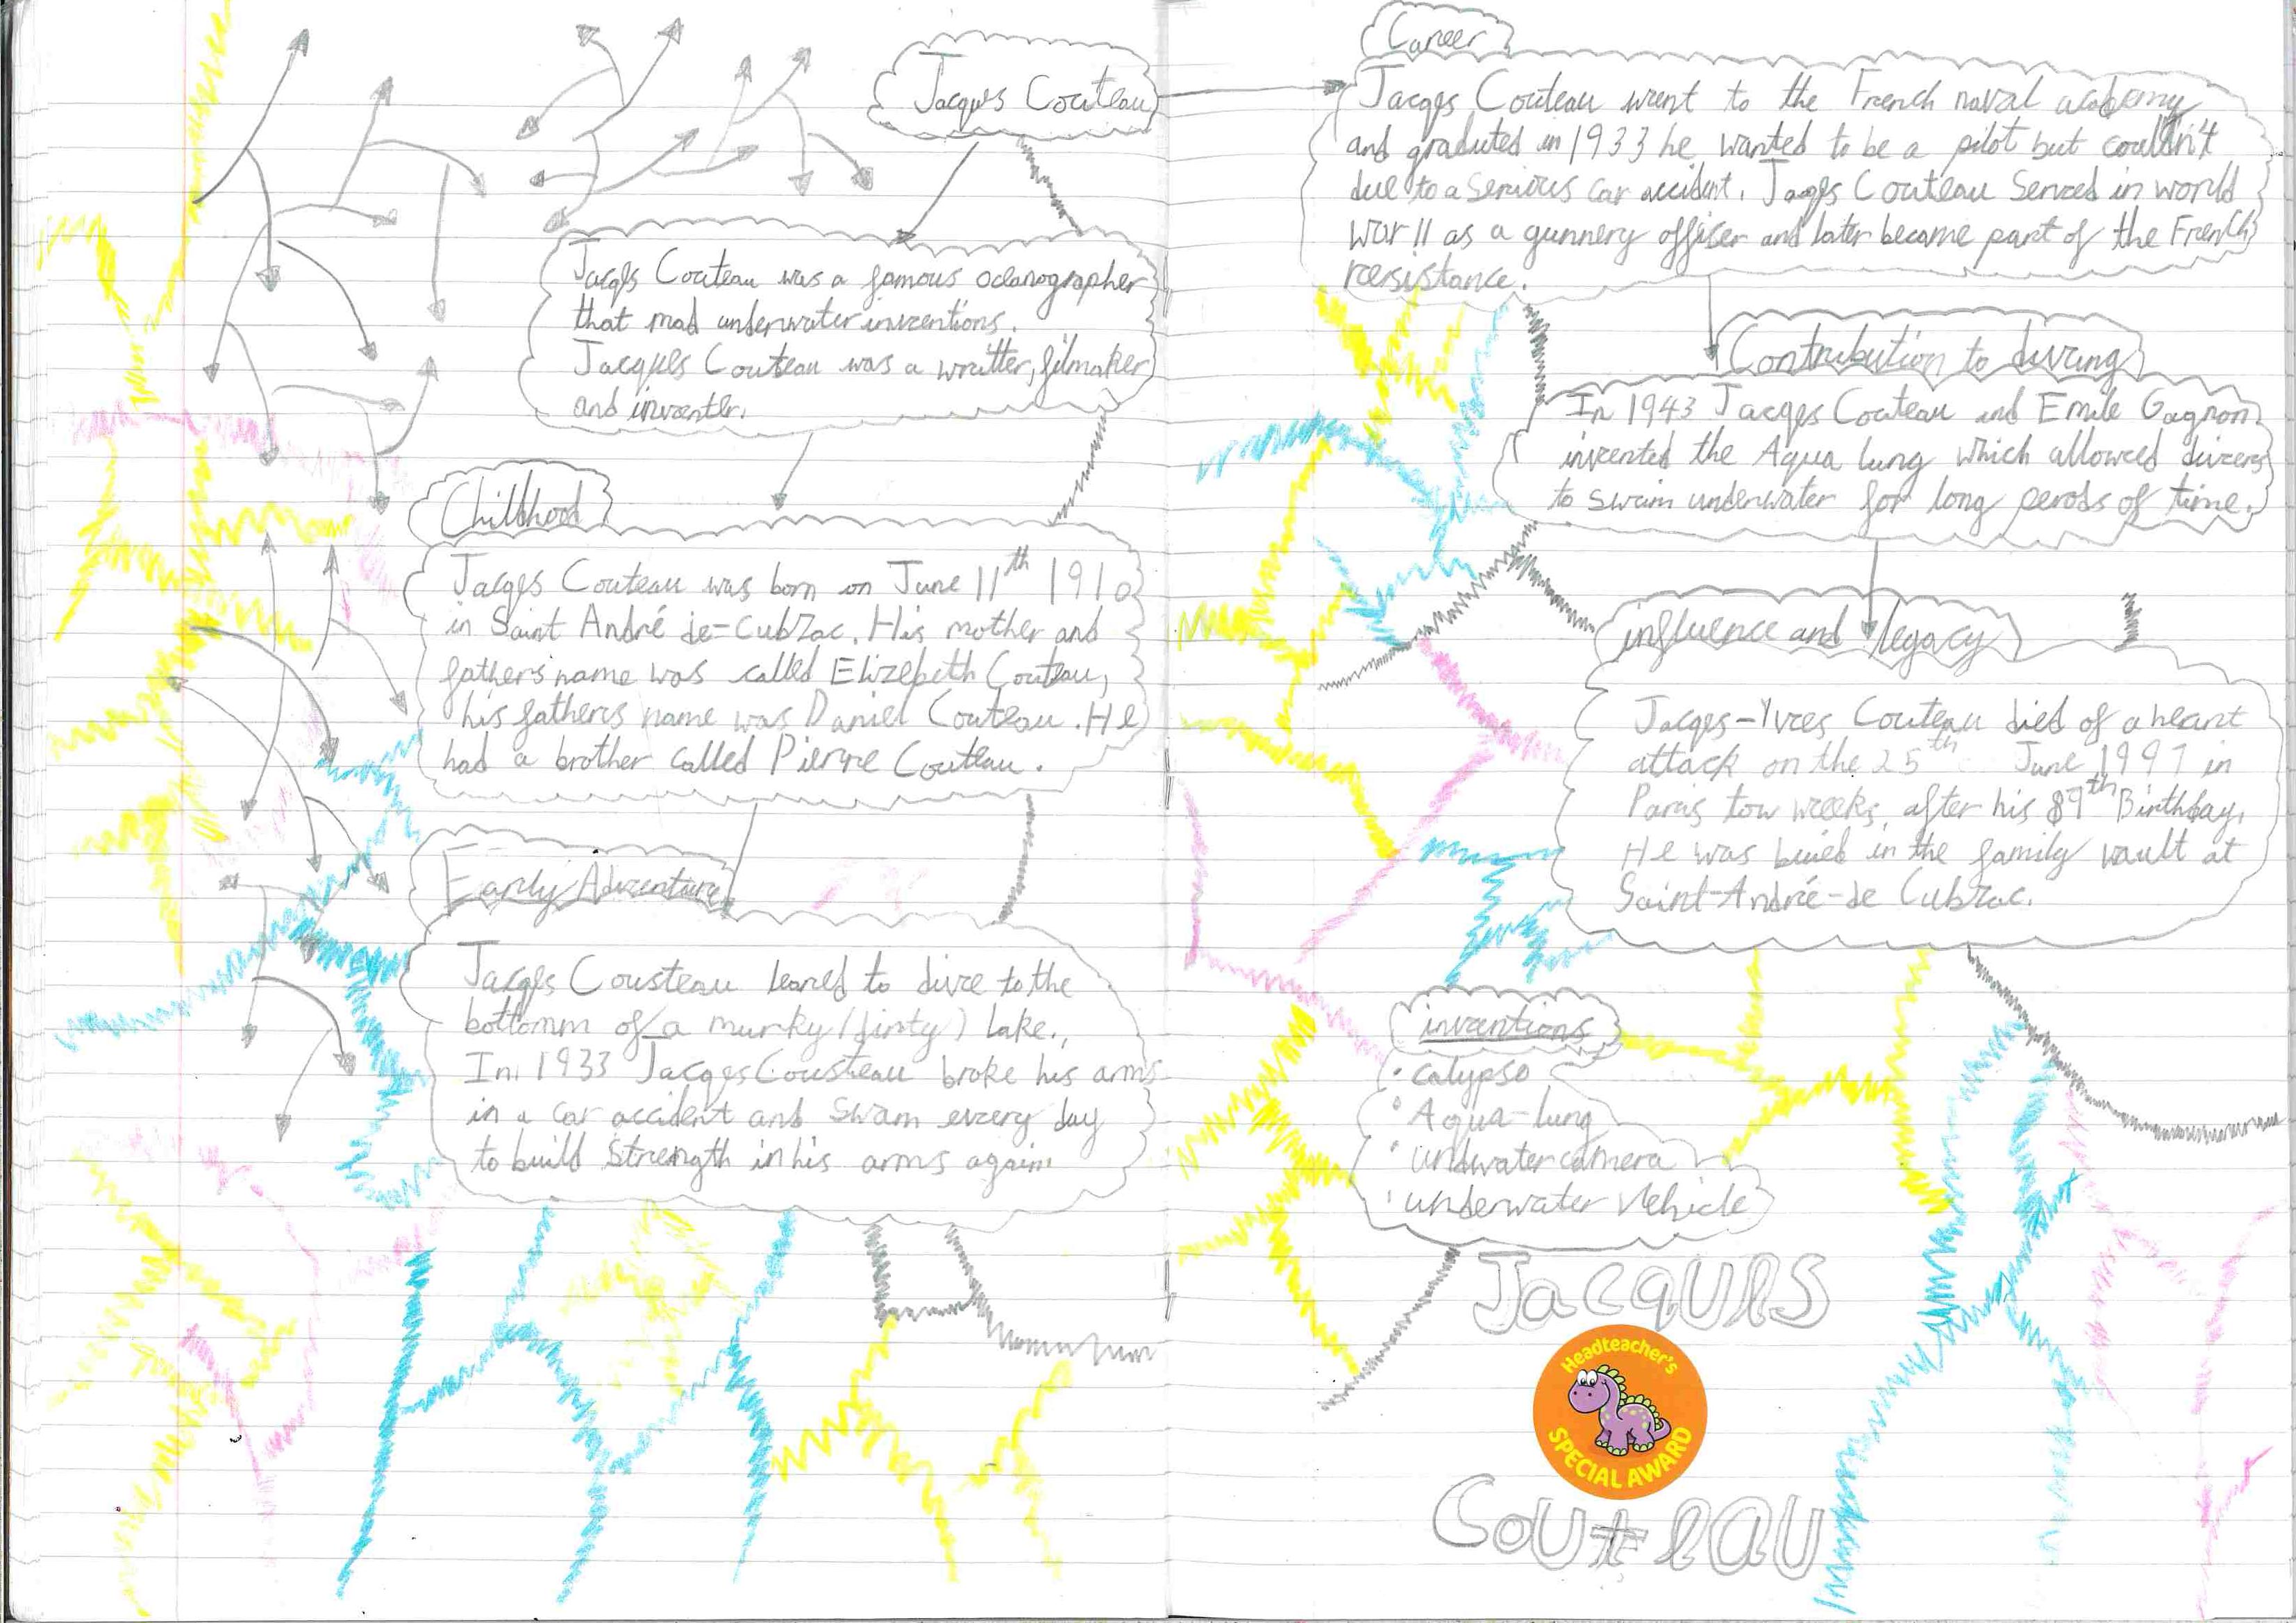 Jacques Couteau
Jacqes Couteau was a famous oceanographer
that mad underwater inventions.
Jacques Couteau was a writter, filmaker
and inventer.
Childhood
Jacqes Couteau was born on June 11th 1910
in Saint André de-Cubzac. His mother and
father's name was called Elizebeth Couteau,
his fathers name was Daniel Couteau. He
had a brother called Pierre Couteau.
Early Adventure
Jacqes Cousteau leared to dive to the
bottomm of a murky (dirty) lake.
In 1933 Jacqes Cousteau broke his arms
in a car accident and swam every day
to build strength in his arms again
Career
Jacqes Couteau went to the French naval academy
and graduted in 1933 he wanted to be a pilot but couldn't
due to a serious car accident. Jaqes Couteau Served in world
war II as a gunnery officer and later become part of the French
resistance.
Contribution to diving
In 1943 Jacqes Couteau and Emile Gagnon
invented the Aqua lung which allowed divers
to swim underwater for long perods of time.
influence and legacy
Jacqes-Yves Couteau died of a heart
attack on the 25th June 1997 in
Paris tow weeks, after his 89th Birthday.
He was buied in the family vault at
Saint-André-de Cubzac.
inventions
• calypso
• Aqua-lung
• undwater camera
• underwater vehicle
Jacques
Headteacher's
SPECIAL AWARD
Couteau